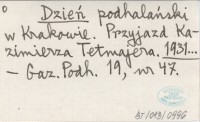 Dzień podhalański
w Krakowie. Przyjazd Ka-
zimierza Tetmajera. 1931...
- Gaz. Podh. 19, nr 47.
BT/043/0996